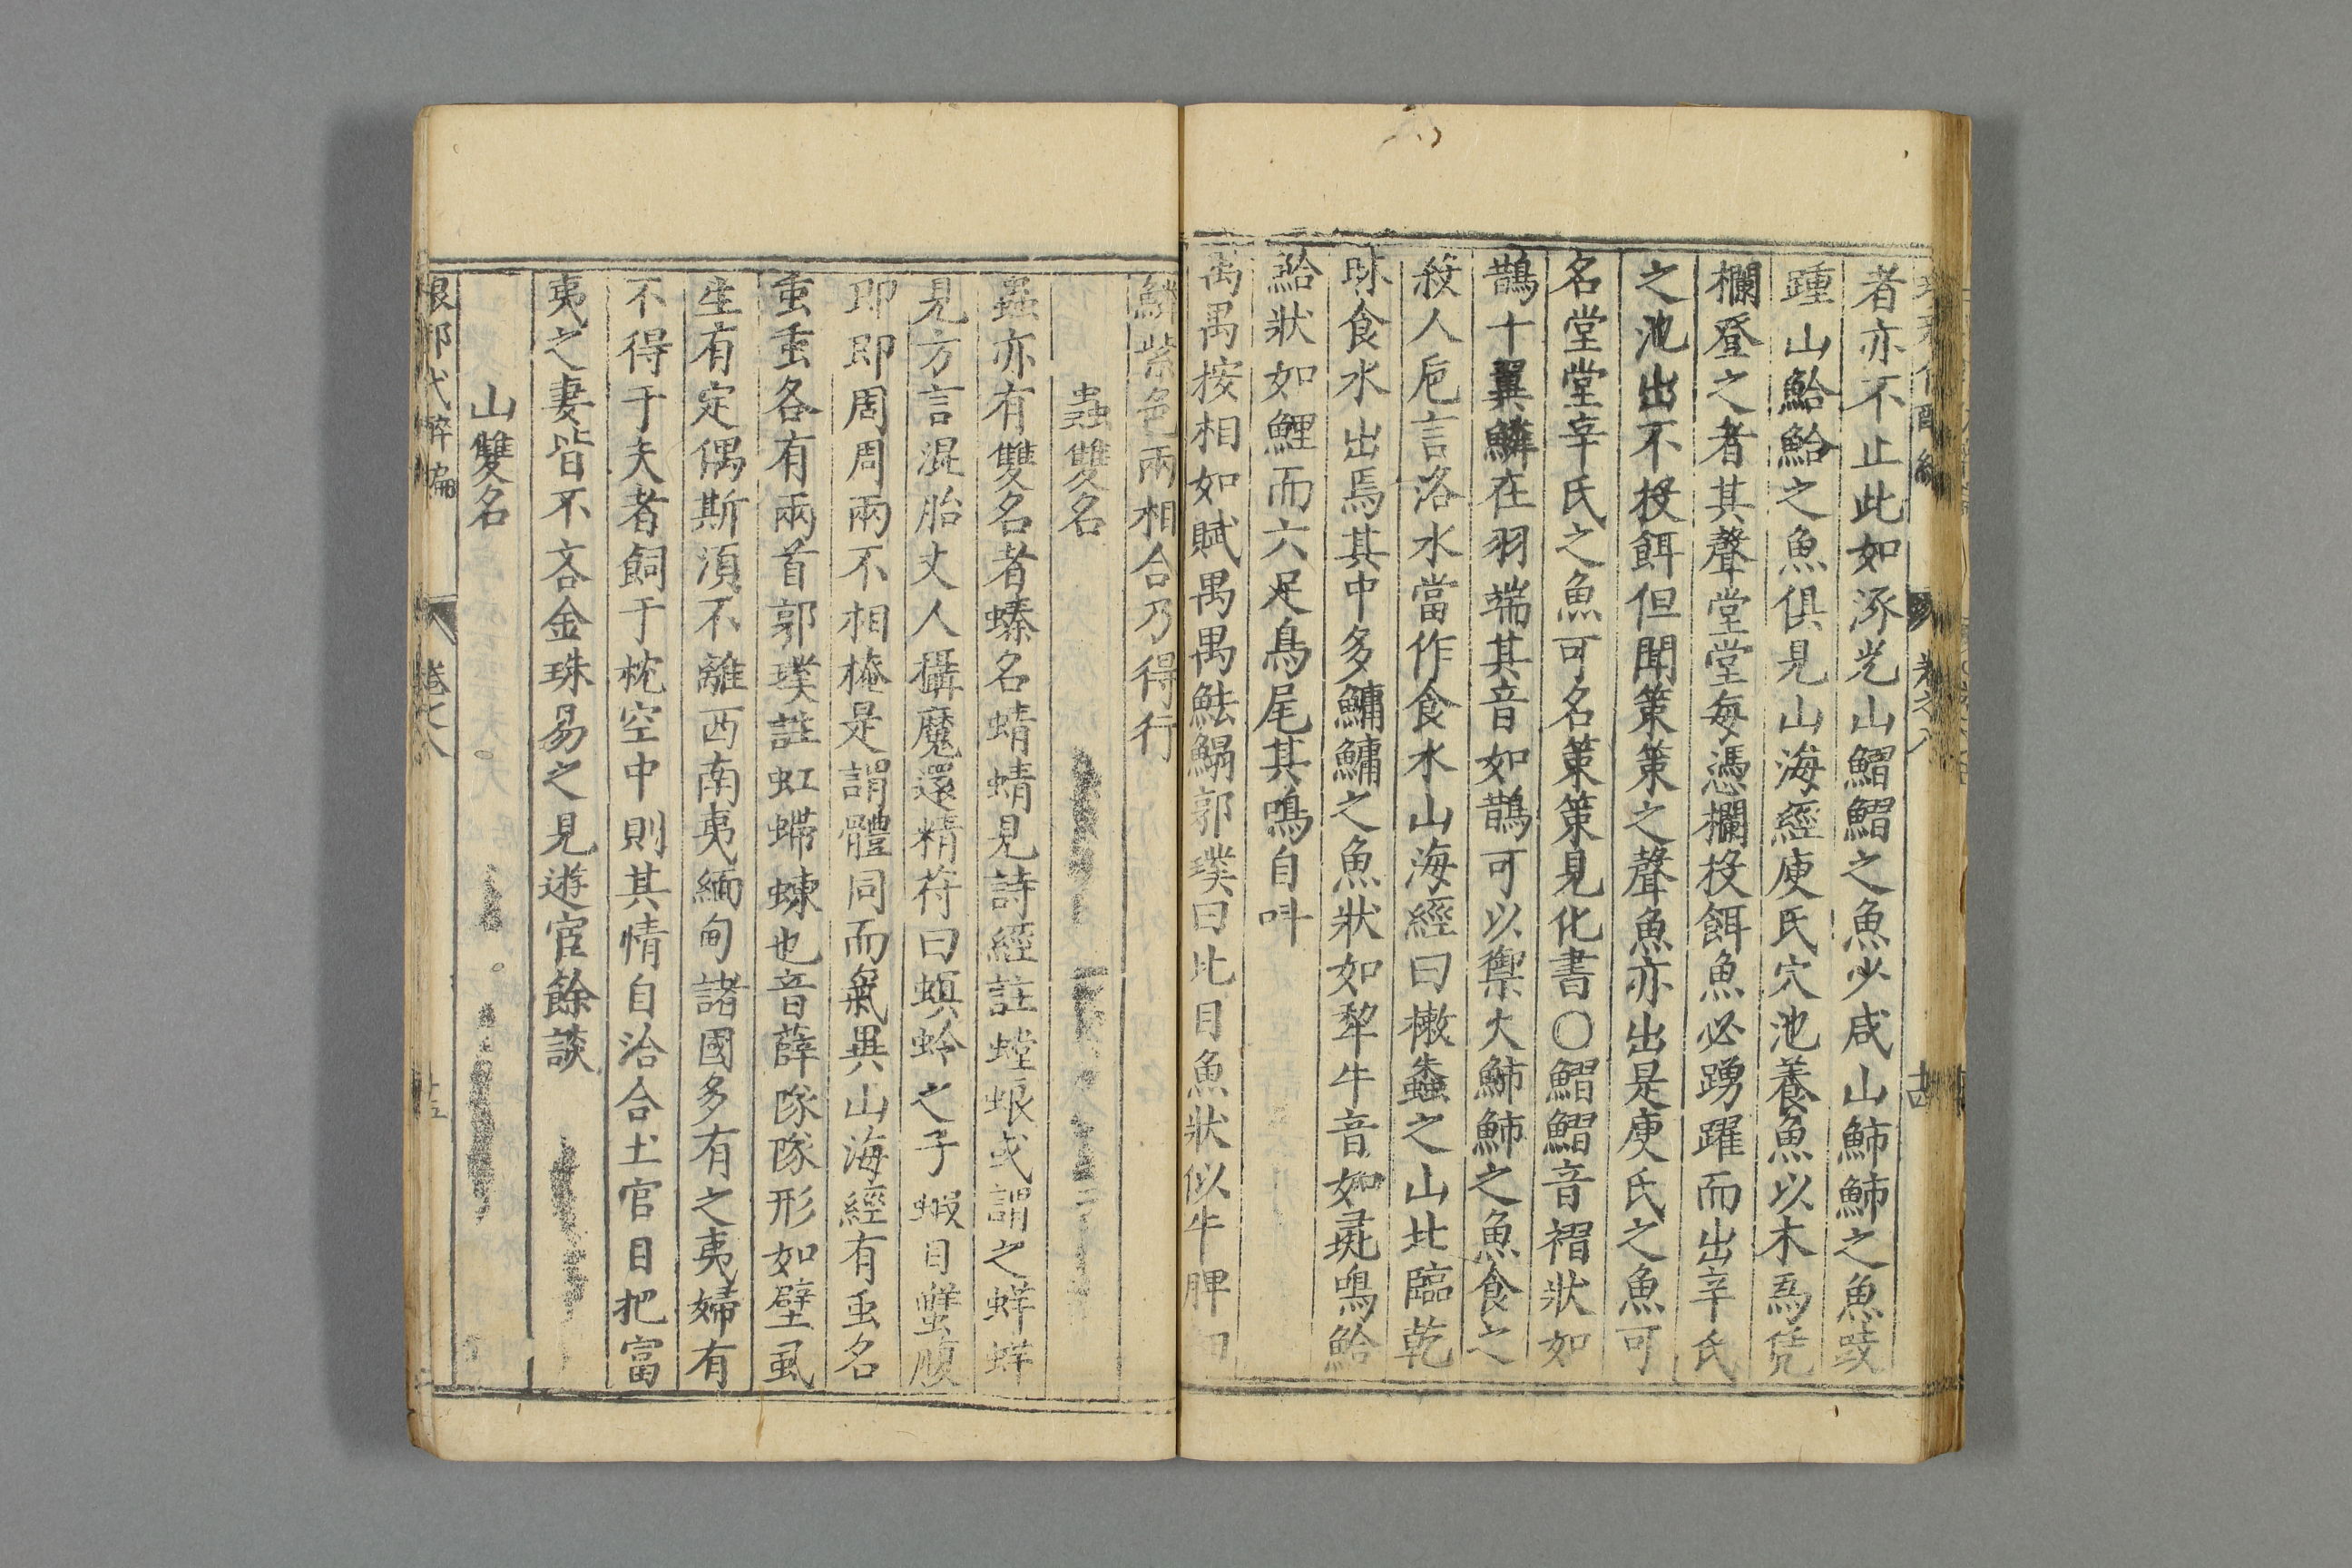 者亦不止此如涿光山鰼鰼之魚少咸山䰽䰽之魚䟣
踵山鮯鮯之魚俱見山海經庾氏穴池養魚以木爲凭
欄登之者其聲堂堂每憑欄投餌魚必踴躍而出辛氏
之池出不投餌但聞策策之聲魚亦出是庾氏之魚可
名堂堂辛氏之魚可名策策見化書〇鰼鰼音褶狀如
鵲十翼鱗在羽端其音如鵲可以禦火䰽䰽之魚食之
殺人巵言洛水當作食水山海經曰樕𧑤之山北臨乾
昧食水出焉其中多鱅鱅之魚狀如犂牛音如彘鳴鮯
鮯狀如鯉而六足鳥尾其鳴自叫
禺禺按相如賦禺禺魼鰨郭璞曰比目魚狀似牛脾細
鱗紫色兩相合乃得行
蟲雙名
蟲亦有雙名者螓名蜻蜻見詩經註螳蜋或謂之蛘蛘
見方言混胎丈人攝魔還精符曰螟蛉之子蝦目蟹腹
即即周周兩不相掩是謂體同而氣異山海經有䖝名
䖝䖝各有兩首郭璞註虹螮蝀也音薛隊隊形如壁虱
生有定偶斯湏不離西南夷緬甸諸國多有之夷婦有
不得于夫者飼于枕空中則其情自洽合土官目把富
夷之妻皆不吝金珠易之見遊宦餘談
山雙名
琅邪代醉編
卷之八